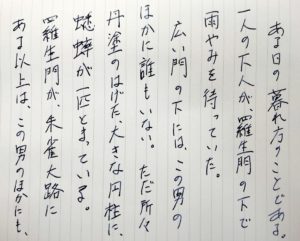 ある日の暮れ方のことである。
一人の下人が、羅生門の下で
雨やみを待っていた。
広い門の下には、この男の
ほかに誰もいない。ただ所々
丹塗のはげた、大きな円柱に、
蟋蟀が一匹とまっている。
羅生門が、朱雀大路に
ある以上は、この男のほかにも、